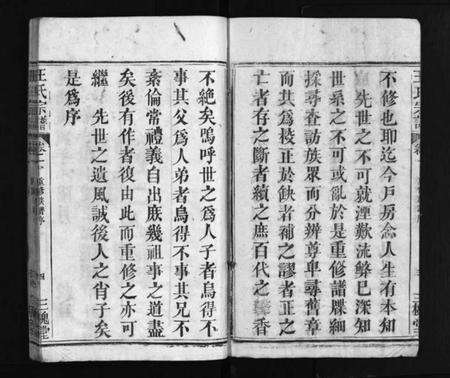 不修也耶迄今戶房念人生有本知
先世之不可就湮歎流
鲧已深知
世系之不可或亂於是重修譜牒細
採尋查訪族眾而分辨尊卑尋舊章
而其為校正於缺者補之謬者正之
亡者存之斷者續之庶百代之馨香
王氏宗譜
三槐堂
不絕矣嗚呼世之為人子者烏得不
事其父為人弟者烏得不事其兄不
紊倫常禮義自出庶幾祖事之道盡
矣後有作者復由此而重修之亦可
繼　先世之遺風誠後人之肖子矣
是為序
王氏宗譜
三槐堂